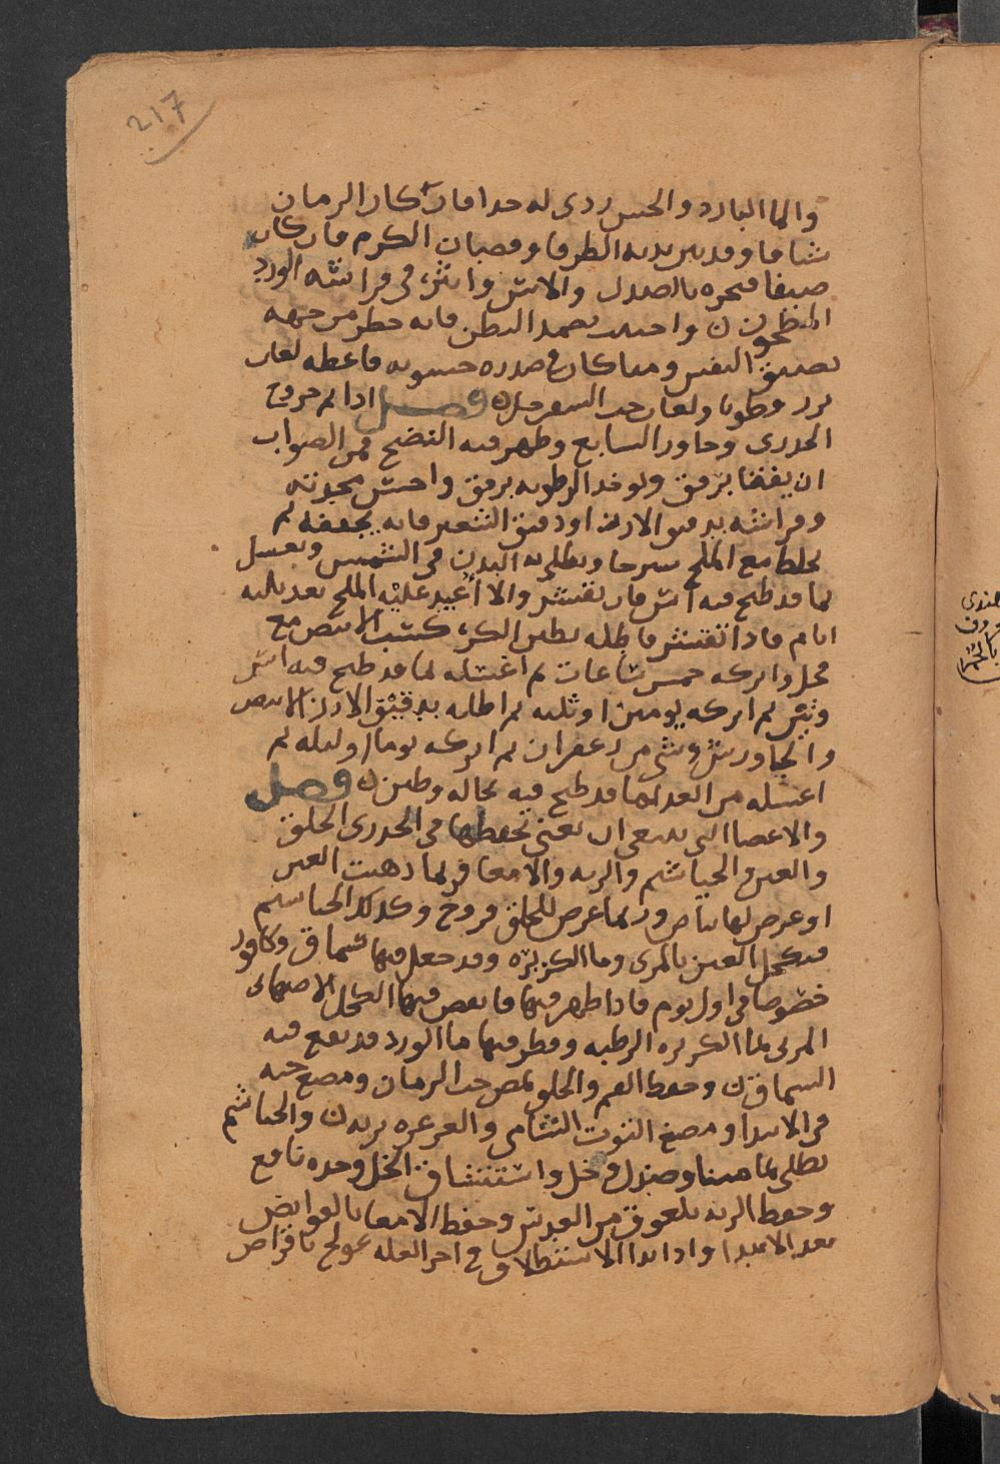 217
والما البارد والحسن ردى له جدا فان كان الزمان
شاتيا وقد بين يديه الطرفا وقضبان الكرم فان كان
صيفا فبخره بالصندل والاس وانثر في فراشه الورد
المطحون واجتنب تضميد البطن فانه خطر من جهة
تضييق النفس ومتى كان في صدره خشونه فاعطه لعاب
بزر قطونا ولعاب حب السفرجل فصل اذا تم خروج
الجدرى وجاوز السابع وظهر فيه النضج فمن الصواب
ان يفقأ برفق وتوخذ الرطوبه برفق واحش مخدته
وفراشه بدقيق الارز او دقيق الشعير فانه يجففه ثم
يخلط مع الملح سيرجا ويطلى به البدن في الشمس ويغسل
بما قد طبخ فيه اس فان تقشر والا أعيد عليه الملح بعد ثلثه
ايام فاذا تقشر فاطله بطين الكر كشب الابيض مع
خل واتركه خمس ساعات ثم اغسله بما قد طبخ فيه اس
ثم اتركه يومين او ثلثه ثم اطله بدقيق الارز الابيض
والجاورش وشى من زعفران ثم اتركه يوما وليله ثم
اغسله من الغد بما قد طبخ فيه نخاله وطين فصل
والاعضا التى ينبغى ان تعنى بحفظها في الجدرى الحلق
والعين والخياشيم والريه والامعا فربما ذهبت العين
او عرض لها بياض وربما عرض للحلق قروح وكذلك الخياشيم
فتكحل العين بالمرى وما الكزبره وقد جعل فيها سماق وكافور
خصوصا في اول يوم فاذا ظهر فيها فانفض فيها الكحل الاصبهانى
المربى بما الكزبره الرطبه وقطر فيها ما الورد قد نقع فيه
السماق وحفظ الفم والحلق بمص حب الرمان ومضغ حبه
في الابتدا ومضغ التوت الشامى والغرغره بربه والخياشيم
تطلى بماميثا وصندل وخل واستنشاق الخل وحده نافع
وحفظ الريه بلعوق من العدس وحفظ الامعا بالقوابض
بعد الابتدا واذا بدا الاستطلاق في اخر العله عولج باقراص